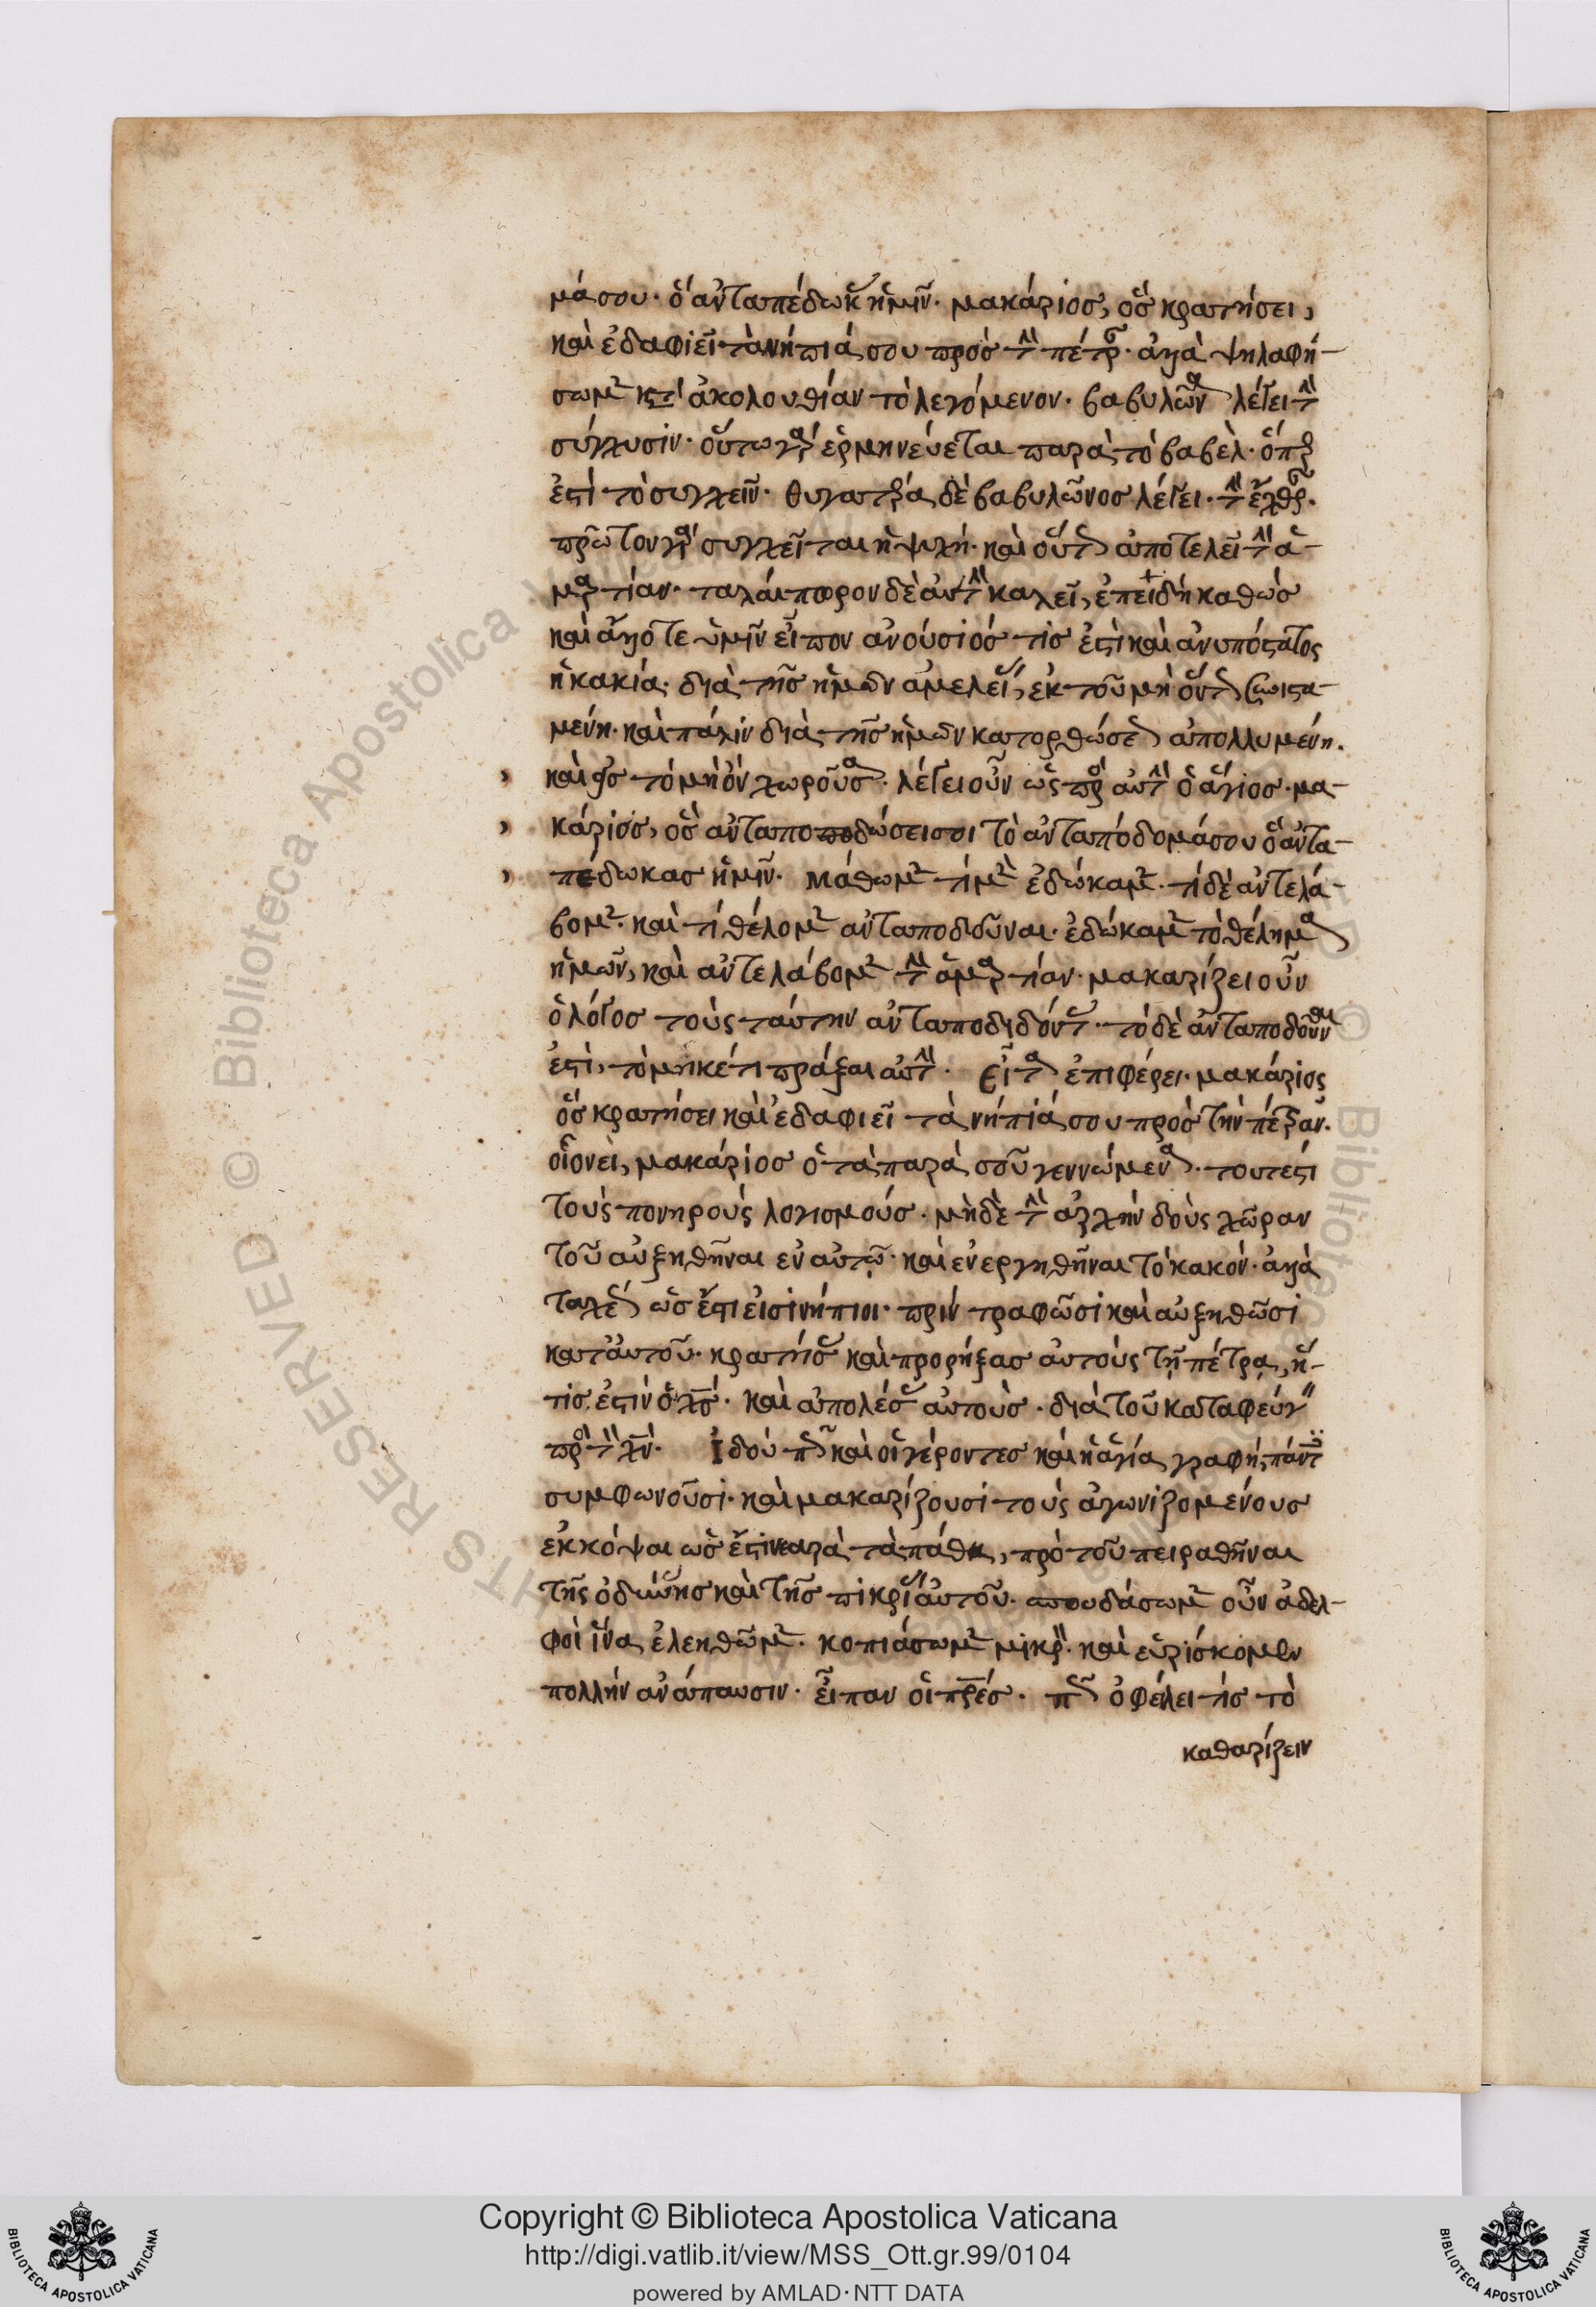 μά σου· ὃ ἀνταπέδωκ ἡμῖν· μακάριος, ὃς κρατήσει,
καὶ ἐδαφιεῖ τὰ νήπιά σου πρὸς τ πέτρ· ἀλλὰ ψηλαφή-
σωμ κτ ἀκολουθίαν τὸ λεγόμενον· βαβυλῶνα λέγει τ
σύγχυσιν· οὕτω γρ ἑρμηνεύεται παρὰ τὸ βαβὲλ· ὅπρ
ἐστὶ τὸ συγχεῖν· θυγατέρα δὲ βαβυλῶνος λέγει· τ ἔχθρ·
πρῶτον γρ συγχεῖται ἡ ψυχή· καὶ οὕτ ἀποτελεῖ τ ἁ-
μρτίαν· ταλαίπωρον δὲ αὐτ καλεῖ, ἐπειδὴ καθὼς
καὶ ἄλλοτε ὑμῖν εἶπον ἀνούσιός τίς ἐστι καὶ ἀνυπόστατος
ἡ κακία· διὰ τῆς ἡμῶν ἀμελεί, ἐκ τοῦ μὴ ὄντ
μένη· καὶ πάλιν διὰ τῆς ἡμῶν κατορθώσε ἀπολλυμένη.
καὶ πρὸς τὸ μὴ ὂν χωροῦσα· λέγει οὖν ὡς πρ αὐτ ὁ ἅγιος· μα-
κάριος, ὃς ἀνταποποδώσει σοι τὸ ἀνταπόδομά σου ὃ ἀντα-
πέδωκας ἡμῖν· μάθωμ τί μ ἐδώκαμ· τί δὲ ἀντελά-
βομ· καὶ τί θέλομ ἀνταποδοῦναι· ἐδώκαμ τὸ θέλημα
ἡμῶν, καὶ ἀντελάβομ τ ἁμρτίαν· μακαρίζει οὖν
ὁ λόγος τοὺς ταύτην ἀνταποδιδόντ· τὸ δὲ ἀνταποδοῦναι
ἐστὶ, τὸ μηκέτι πρᾶξαι αὐτ· Εἶτα ἐπιφέρει· μακάριος
ὃς κρατήσει καὶ ἐδαφιεῖ τὰ νήπιά σου πρὸς τὴν πέτραν·
οἱονεὶ, μακάριος ὁ τὰ παρὰ σοῦ γεννώμενα· τουτέστι
τοὺς πονηροὺς λογισμούς· μηδὲ τ ἀρχὴν δοὺς χώραν
τοῦ αὐξηθῆναι ἐν αὐτῷ· καὶ ἐνεργηθῆναι τὸ κακόν· ἀλλὰ
ταχέ ὡς ἔτι εἰσὶ νήπιοι· πρὶν τραφῶσι καὶ αὐξηθῶσι
κατ' αὐτοῦ· κρατήσ καὶ προρήξας αὐτοὺς τῇ πέτρᾳ, ἥ-
τις ἐστὶν ὁ χς· καὶ ἀπολέσ αὐτοὺς· διὰ τοῦ καταφεύγ
πρ τ χν· Ἰδοὺ π καὶ οἱ γέροντες καὶ ἡ ἁγία γραφὴ, πάντ
συμφωνοῦσι· καὶ μακαρίζουσι τοὺς ἀγωνιζομένους
ἐκκόψαι ὡς ἔτι νεαρὰ τὰ πάθη, πρὸ τοῦ πειραθῆναι
τῆς ὀδύνης καὶ τῆς πικρί αὐτοῦ· σπουδάσωμ οὖν ἀδελ-
φοὶ ἵνα ἐλεηθῶμ· κοπιάσωμ μικρ· καὶ εὑρίσκομεν
πολλὴν ἀνάπαυσιν· εἶπαν οἱ πρές· π ὀφέλει τίς τὸ
καθαρίζειν
Copyright © Biblioteca Apostolica Vaticana
http://digi.vatlib.it/view/MSS_Ott.gr.99/0104
powered by AMLAD·NTT DATA
BIBLIOTECA APOSTOLICA VATICANA
BIBLIOTECA APOSTOLICA VATICANA